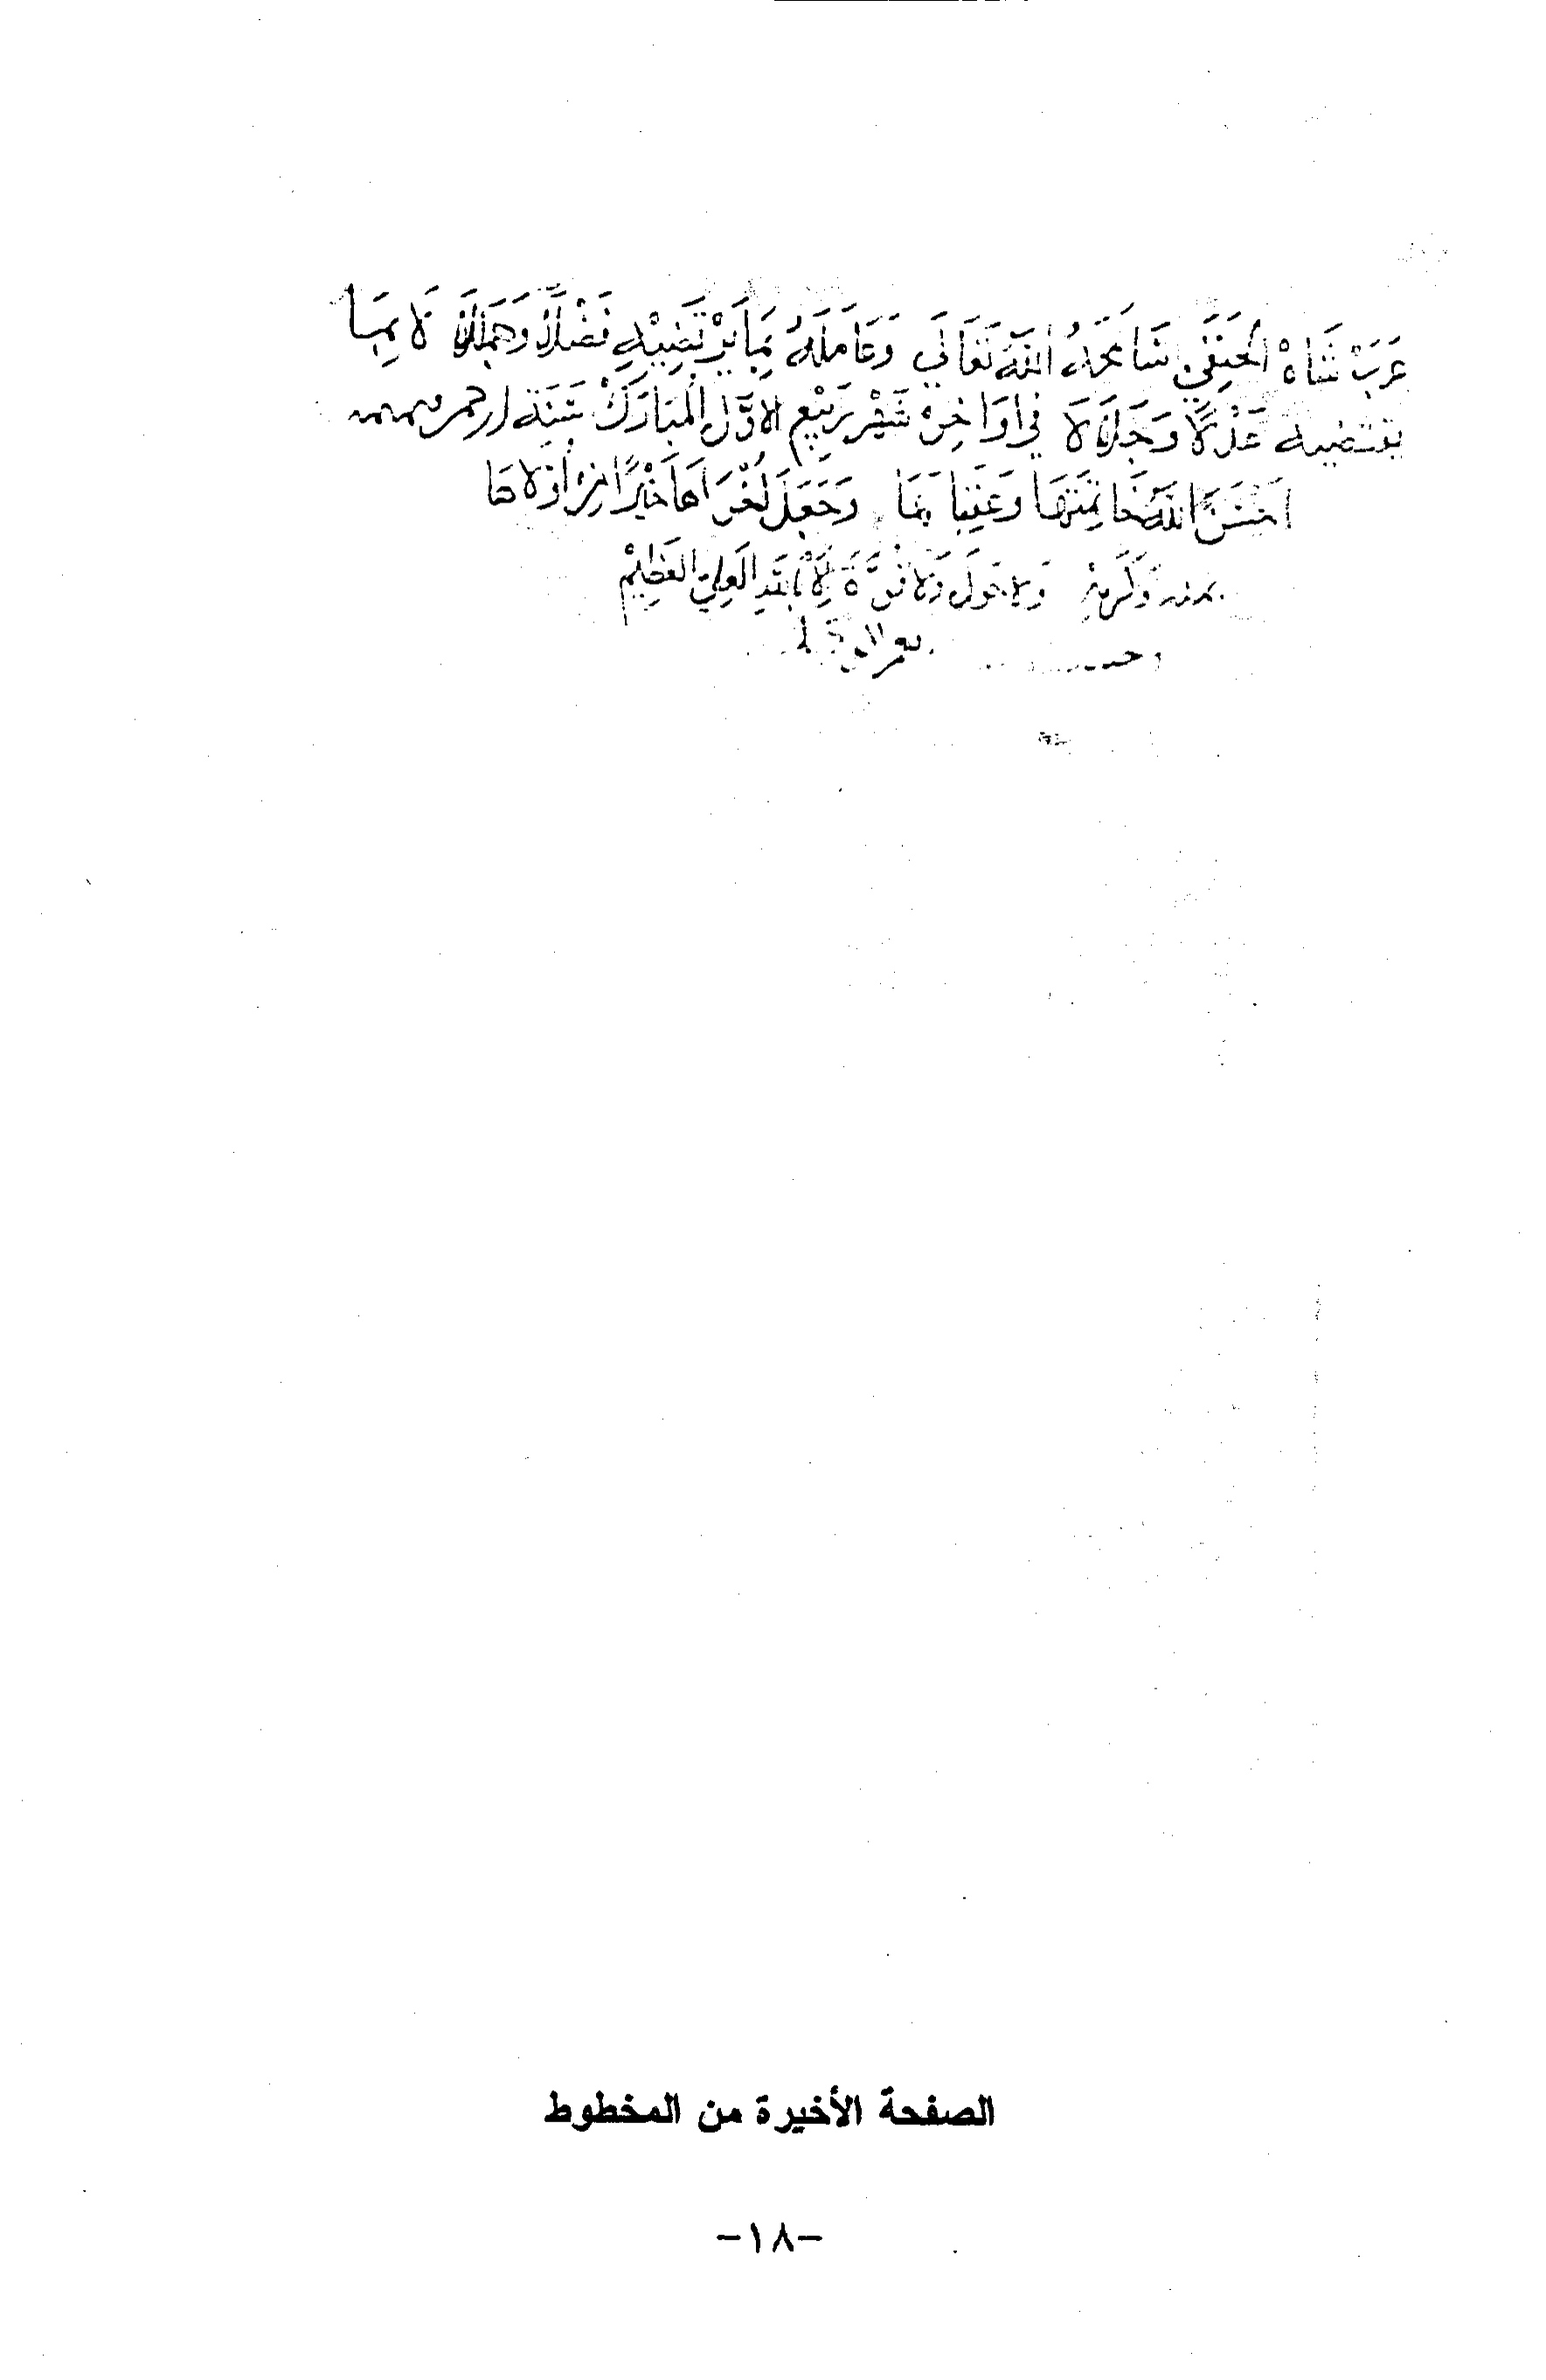 عَرَبْ شَاهْ الحَنَفِي سَامَحَهُ اللهُ تَعَالَى وَعَامَلَهُ بِمَا يَرْتَضِيْهِ فَضْلًا وَجَمَالًا لَا بِمَا
يقتضيه عَدْلًا وَجَلَالًا في اوَاخِرِ شَهْرِ رَبِيْعِ الاوَّلِ المُبَارَكْ سَنَةِ
احْسَنَ اللهُ خَاتِمَتَهَا وَعُقْبَاهَا وَجَعَلَ اُخْرَاهَا خَيْرًا مِنْ أُوْلَاهَا
بمنه وَكَرمِهِ وَلا حَوْلَ وَلا قُوَّةَ إِلَّا بِاللهِ العَلِيِّ العَظِيْمْ
الصفحة الأخيرة من المخطوط
-١٨-